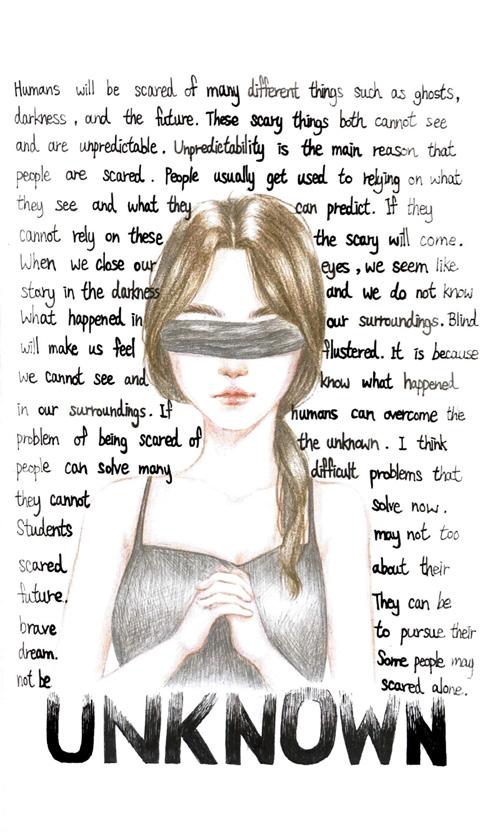 Humans will be scared of many different things such as ghosts,
darkness, and the future. These scary things both cannot see
and are unpredictable. Unpredictability is the main reason that
people are scared. People usually get used to relying on what
they see and what they can predict. If they
cannot rely on these the scary will come.
When we close our eyes, we seem like
stary in the darkness and we do not know
what happened in our surroundings. Blind
will make us feel flustered. It is because
we cannot see and know what happened
in our surroundings. If humans can overcome the
problem of being scared of the unknown. I think
people can solve many difficult problems that
they cannot solve now.
Students may not too
scared about their
future. They can be
brave to pursue their
dream. Some people may
not be scared alone.
UNKNOWN